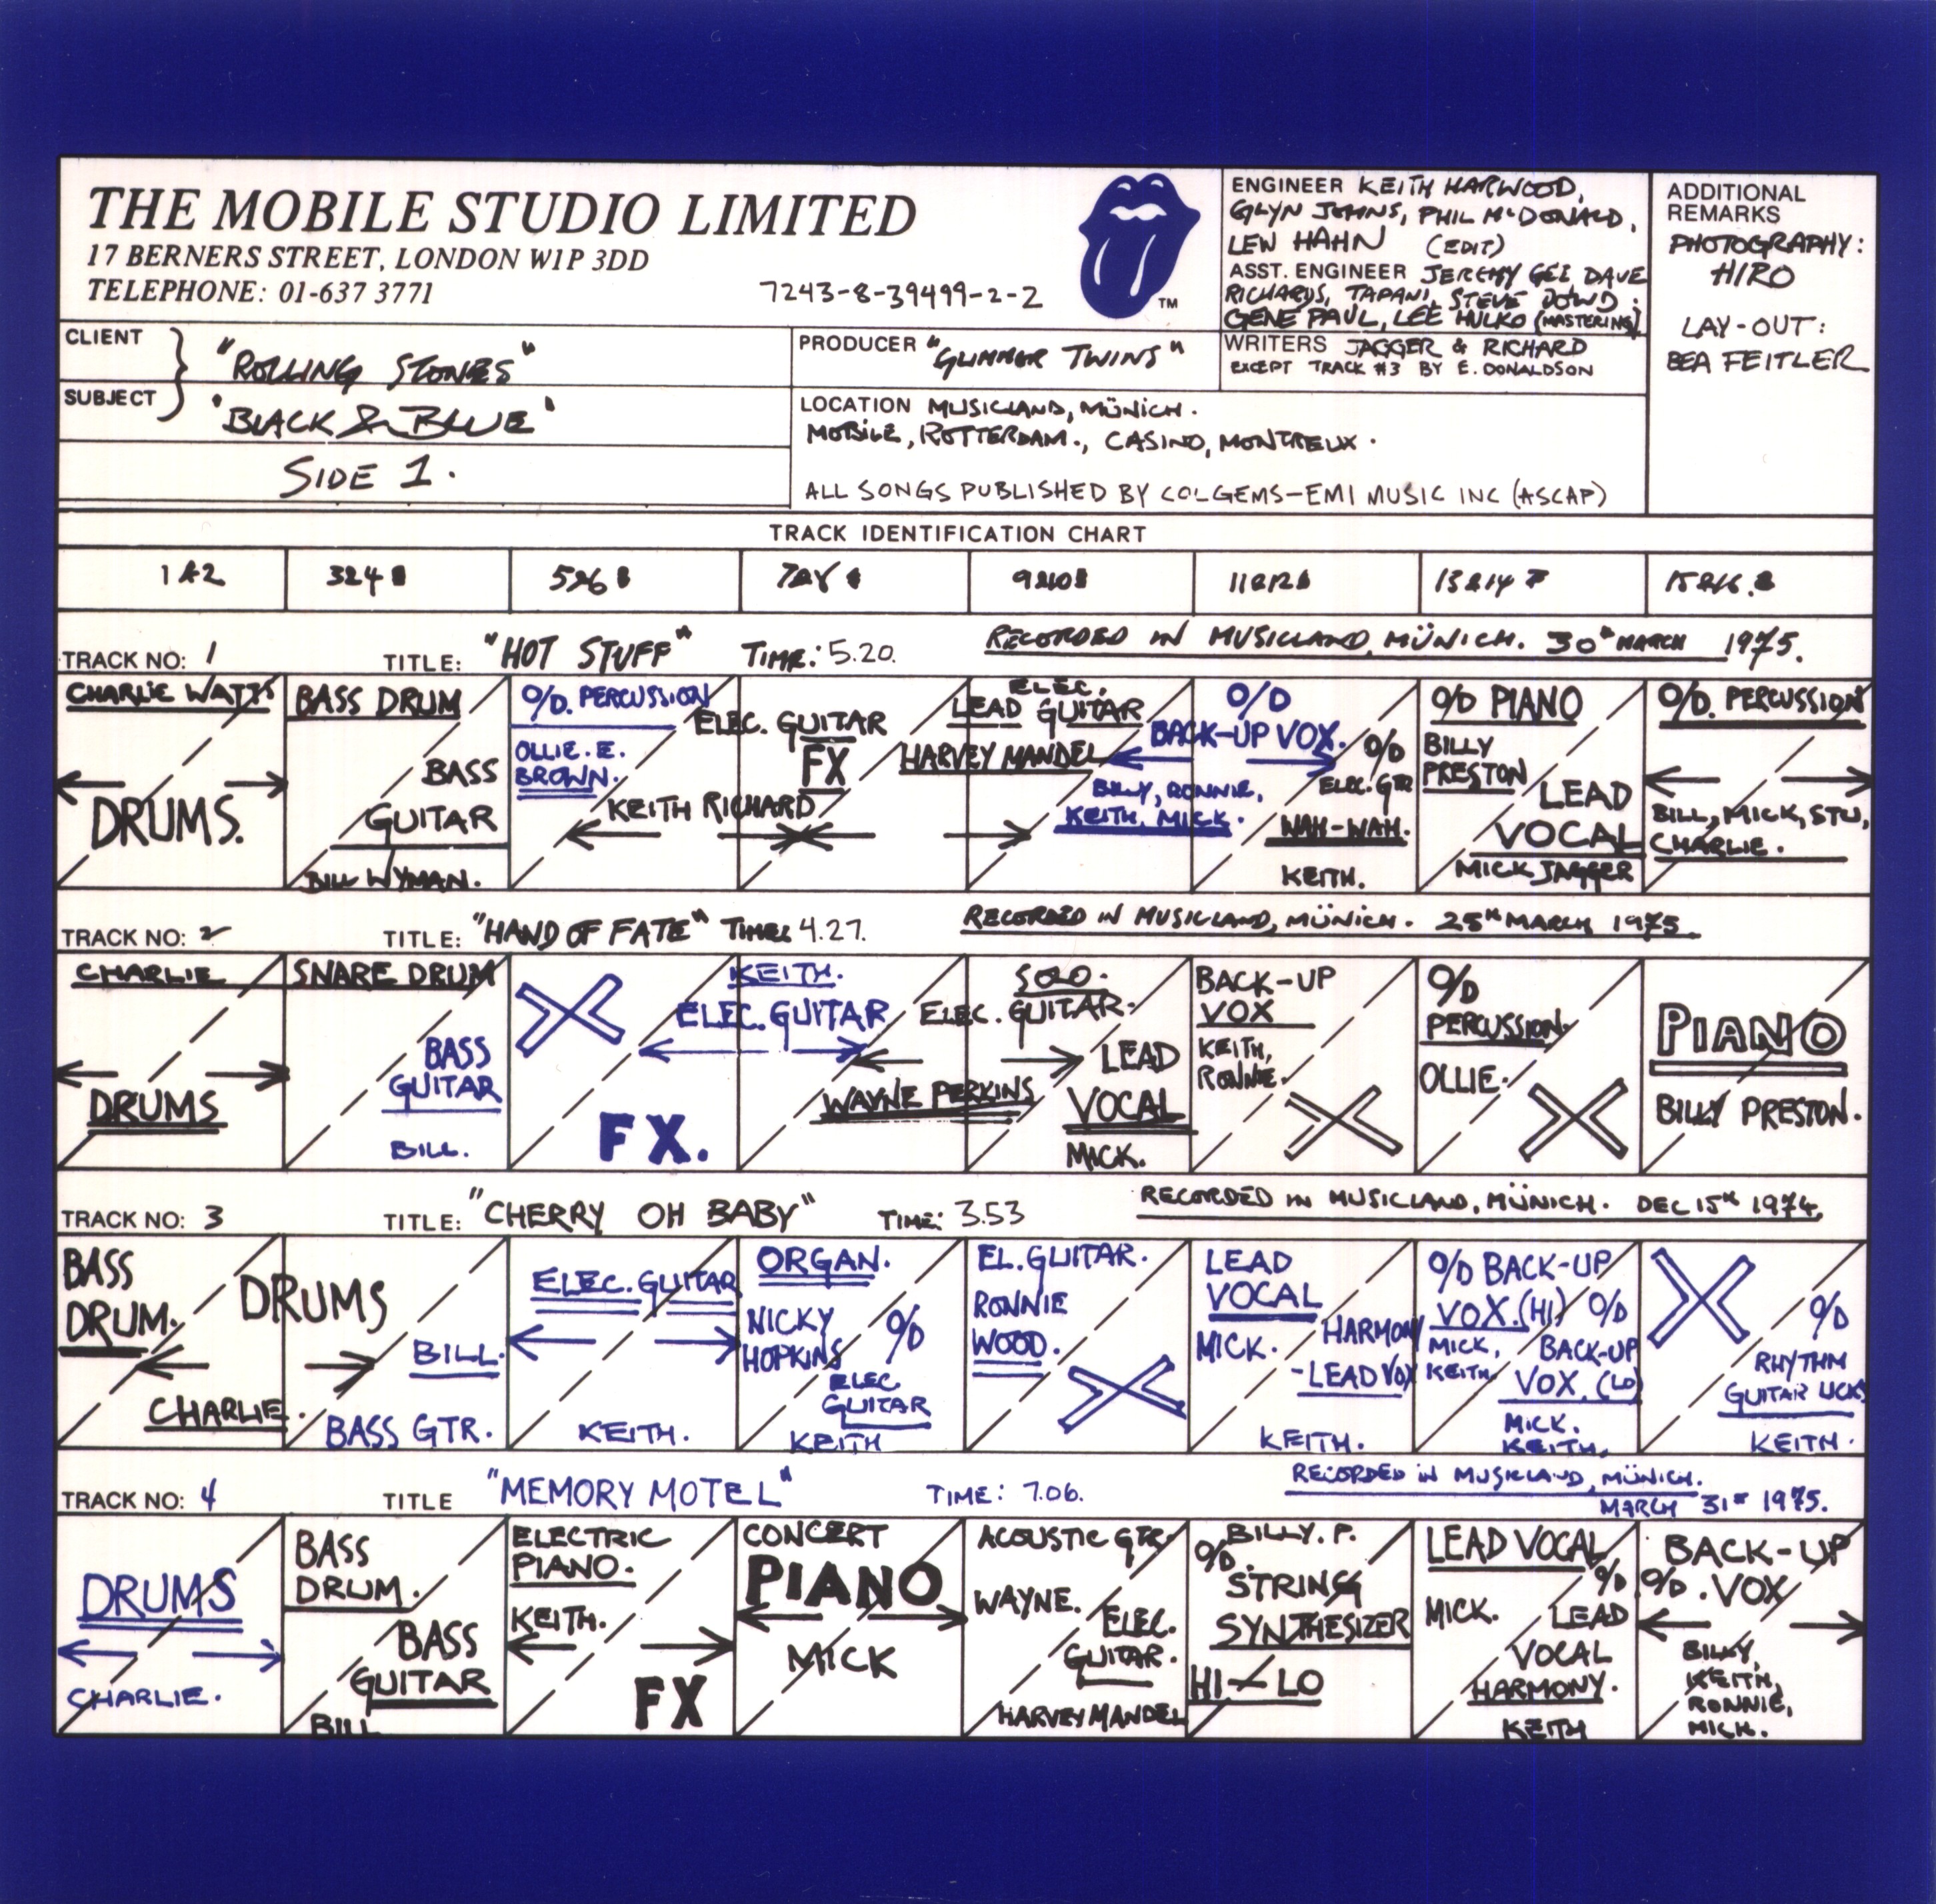 THE MOBILE STUDIO LIMITED
17 BERNERS STREET, LONDON W1P 3DD
TELEPHONE: 01-637 3771
7243-8-39499-2-2
TM
ENGINEER KEITH HARWOOD,
GLYN JOHNS, PHIL McDONALD,
LEW HAHN (EDIT)
ASST. ENGINEER JEREMY GEE DAVE
RICHARDS, TAPANI, STEVE DOWD;
GENE PAUL, LEE HULKO (MASTERING)
WRITERS JAGGER & RICHARD
EXCEPT TRACK #3 BY E. DONALDSON
ADDITIONAL
REMARKS
PHOTOGRAPHY:
HIRO
LAY-OUT:
BEA FEITLER
CLIENT
"ROLLING STONES"
SUBJECT
'BLACK & BLUE'
SIDE 1.
PRODUCER "GLIMMER TWINS"
LOCATION MUSICLAND, MÜNICH.
MOBILE, ROTTERDAM., CASINO, MONTREUX.
ALL SONGS PUBLISHED BY COLGEMS-EMI MUSIC INC (ASCAP)
TRACK IDENTIFICATION CHART
1&2
3&4
5&6
7&8
9&10
11&12
13&14
15&16
TRACK NO: 1 TITLE: "HOT STUFF" TIME: 5.20. RECORDED IN MUSICLAND, MÜNICH. 30th MARCH 1975.
CHARLIE WATTS
DRUMS.
BASS DRUM
BASS
GUITAR
BILL WYMAN.
O/D. PERCUSSION
OLLIE. E.
BROWN.
ELEC. GUITAR
FX
KEITH RICHARD
ELEC.
LEAD GUITAR
HARVEY MANDEL
O/D
BACK-UP VOX.
BILLY, RONNIE,
KEITH, MICK.
O/D
ELEC. GTR
WAH-WAH.
KEITH.
O/D PIANO
BILLY
PRESTON
LEAD
VOCAL
MICK JAGGER
O/D. PERCUSSION
BILL, MICK, STU,
CHARLIE.
TRACK NO: 2 TITLE: "HAND OF FATE" TIME: 4.27. RECORDED IN MUSICLAND, MÜNICH. 25th MARCH 1975.
CHARLIE
DRUMS
SNARE DRUM
BASS
GUITAR
BILL.
FX.
KEITH.
ELEC. GUITAR
SOLO.
ELEC. GUITAR.
WAYNE PERKINS
LEAD
VOCAL
MICK.
BACK-UP
VOX
KEITH,
RONNIE.
O/D
PERCUSSION.
OLLIE.
PIANO
BILLY PRESTON.
TRACK NO: 3 TITLE: "CHERRY OH BABY" TIME: 3.53 RECORDED IN MUSICLAND, MÜNICH. DEC 15th 1974.
BASS
DRUM.
DRUMS
CHARLIE.
BILL.
BASS GTR.
ELEC. GUITAR
KEITH.
ORGAN.
NICKY
HOPKINS
O/D
ELEC
GUITAR
KEITH
EL. GUITAR.
RONNIE
WOOD.
LEAD
VOCAL
MICK.
HARMONY
-LEAD VOX
KEITH.
O/D BACK-UP
VOX. (HI)
MICK,
KEITH.
O/D
BACK-UP
VOX. (LO)
MICK.
KEITH.
O/D
RHYTHM
GUITAR LICKS
KEITH.
TRACK NO: 4 TITLE "MEMORY MOTEL" TIME: 7.06. RECORDED IN MUSICLAND, MÜNICH.
MARCH 31st 1975.
DRUMS
CHARLIE.
BASS
DRUM.
BASS
GUITAR
BILL
ELECTRIC
PIANO.
KEITH.
FX
CONCERT
PIANO
MICK
ACOUSTIC GTR.
WAYNE.
ELEC.
GUITAR.
HARVEY MANDEL
BILLY. P.
O/D.
STRING
SYNTHESIZER
HI + LO
LEAD VOCAL
MICK.
O/D
LEAD
VOCAL
HARMONY.
KEITH
BACK-UP
O/D. VOX
BILLY,
KEITH,
RONNIE,
MICK.